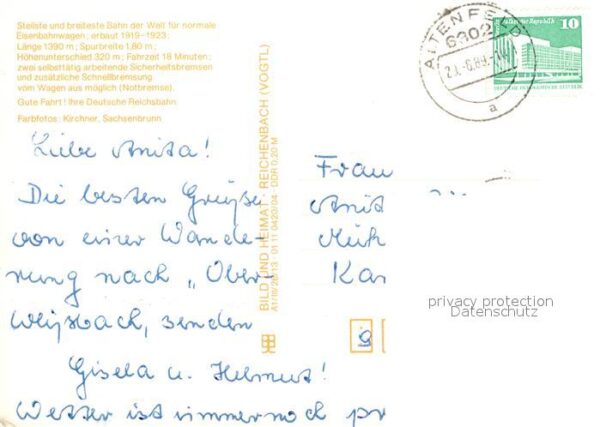 Steilste und breiteste Bahn der Welt für normale
Eisenbahnwagen; erbaut 1919-1923;
Länge 1390 m; Spurbreite 1,80 m;
Höhenunterschied 320 m; Fahrzeit 18 Minuten;
zwei selbsttätig arbeitende Sicherheitsbremsen
und zusätzliche Schnellbremsung
vom Wagen aus möglich (Notbremse).
Gute Fahrt! Ihre Deutsche Reichsbahn.
Farbfotos: Kirchner, Sachsenbrunn
Liebe Anita!
Die besten Grüße
von einer Wande-
rung nach "Ober-
Weißbach, senden
Gisela u. Helmut!
Wetter ist immer noch pr
BILD UND HEIMAT REICHENBACH (VOGTL)
01 11 0420/04 DDR 0,20 M
ALTENFELD
6302
a
10
Palast der Republik
DEUTSCHE DEMOKRATISCHE REPUBLIK
Frau
Anit
Kar
privacy protection
Datenschutz